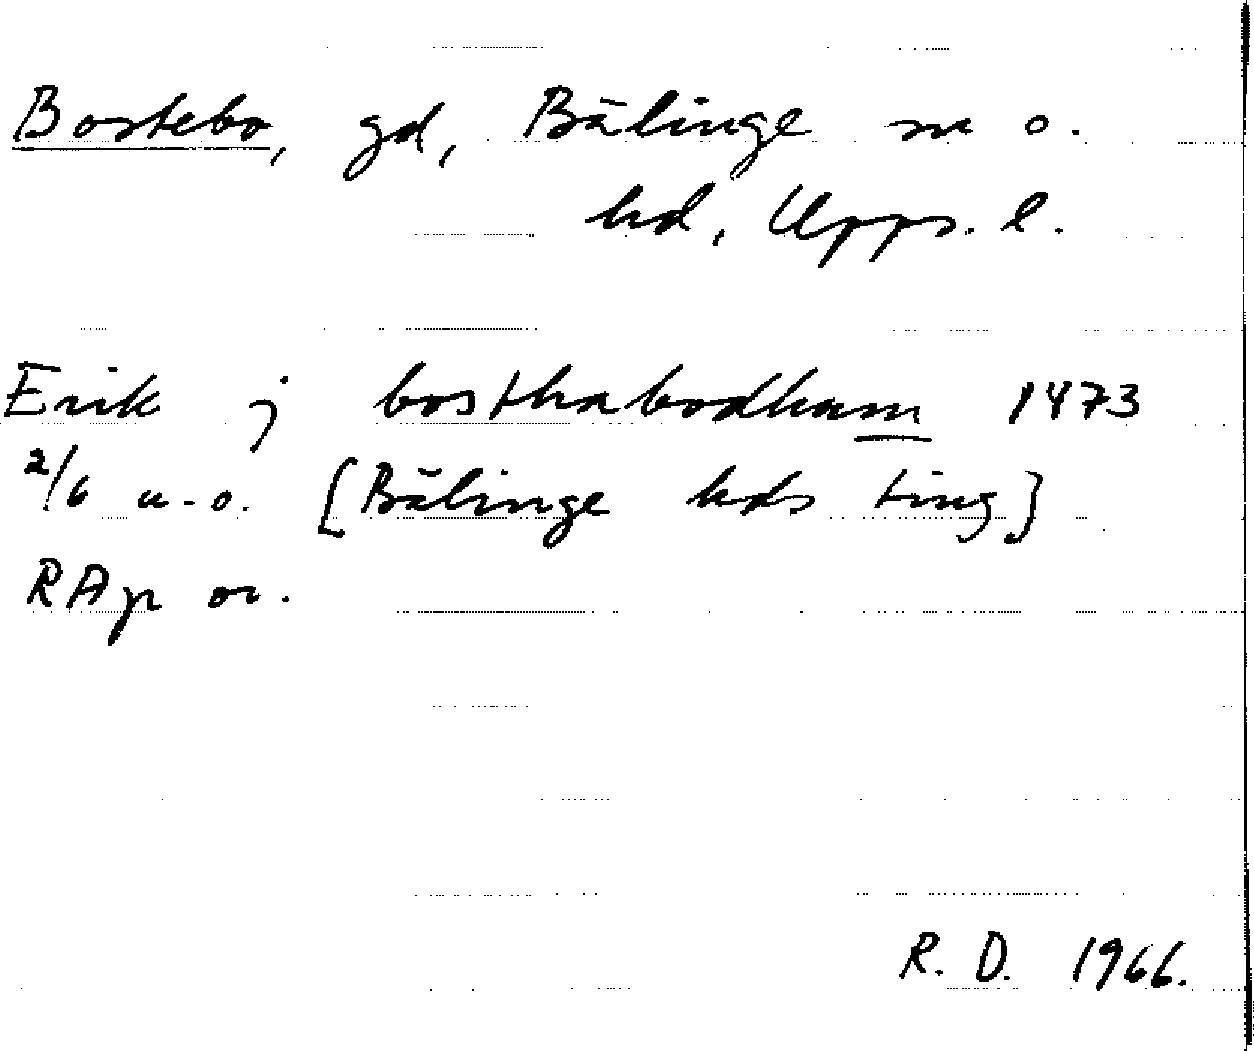 Bostebo, gd, Bälinge sn o.
hd, Upps. l.
Erik j bosthabodham 1473
2/6 u.o. [Bälinge hds ting]
RAp or.
R. D. 1966.